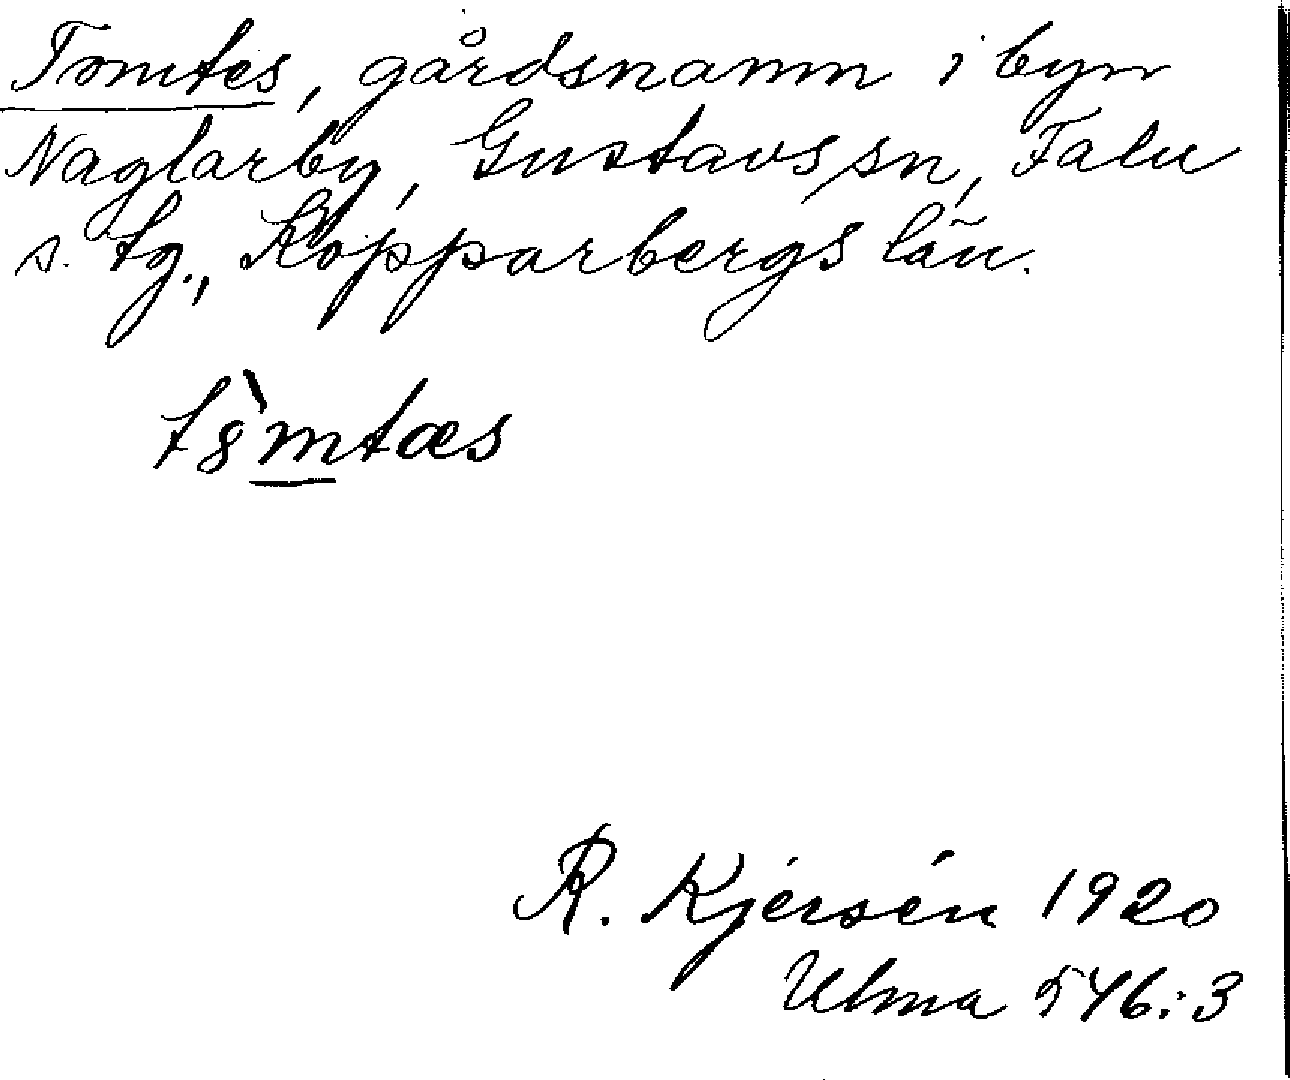 Tomtes, gårdsnamn i byn
Naglarby, Gustavs sn, Falu
s. tg., Kopparbergs län.
t8̀mtæs
R. Kjersén 1920
Ulma 546:3